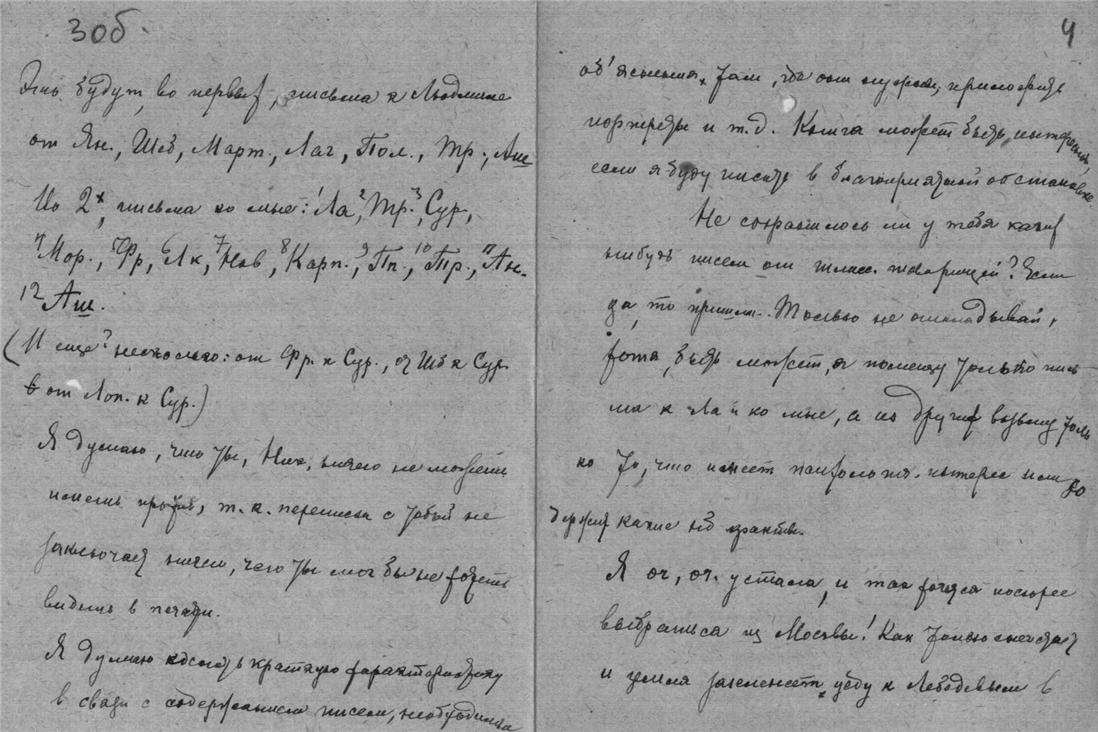 30б.
будут, во первых, письма к Людмиле
от Ян., Шеб, Март., Лаг, Пол., Тр., Аш
Из 2х, письма ко мне: 1 Ла, 2 Тр. 3 Сур,
4 Мор., 5 Фр, 6 Лк, 7 Нов, 8 Карп., 9 Пп., 10 Тр., 11 Ан.
12 Аш.
(И еще? несколько: от Фр. к Сур., от Шеб к Сур
от Лоп. к Сур.)
Я думаю, что ты, Ник, ничего не можешь
иметь против, т. к. переписка с тобой не
заключает ничего, чего ты мог бы не хотеть
видеть в печати.
Я думаю краткую характеристику
в связи с содержанием писем, необходимые
4
об'яснения там, где они нужны, приложить
портреты и т.д. Книга может быть интересной,
если я буду писать в благоприятной обстановке.
Не сохранилось ли у тебя каких
нибудь писем от товарищей? Если
да, то пришли. Только не откладывай,
хотя, быть может, я помещу только пись-
ма к Ла и ко мне, а из других возьму толь
ко то, что имеет интерес или со
держит какие нб факты.
Я оч, оч. устала, и так хочется поскорее
выбраться из Москвы! Как только
и земля зазеленеет, уеду к Лебедевым в